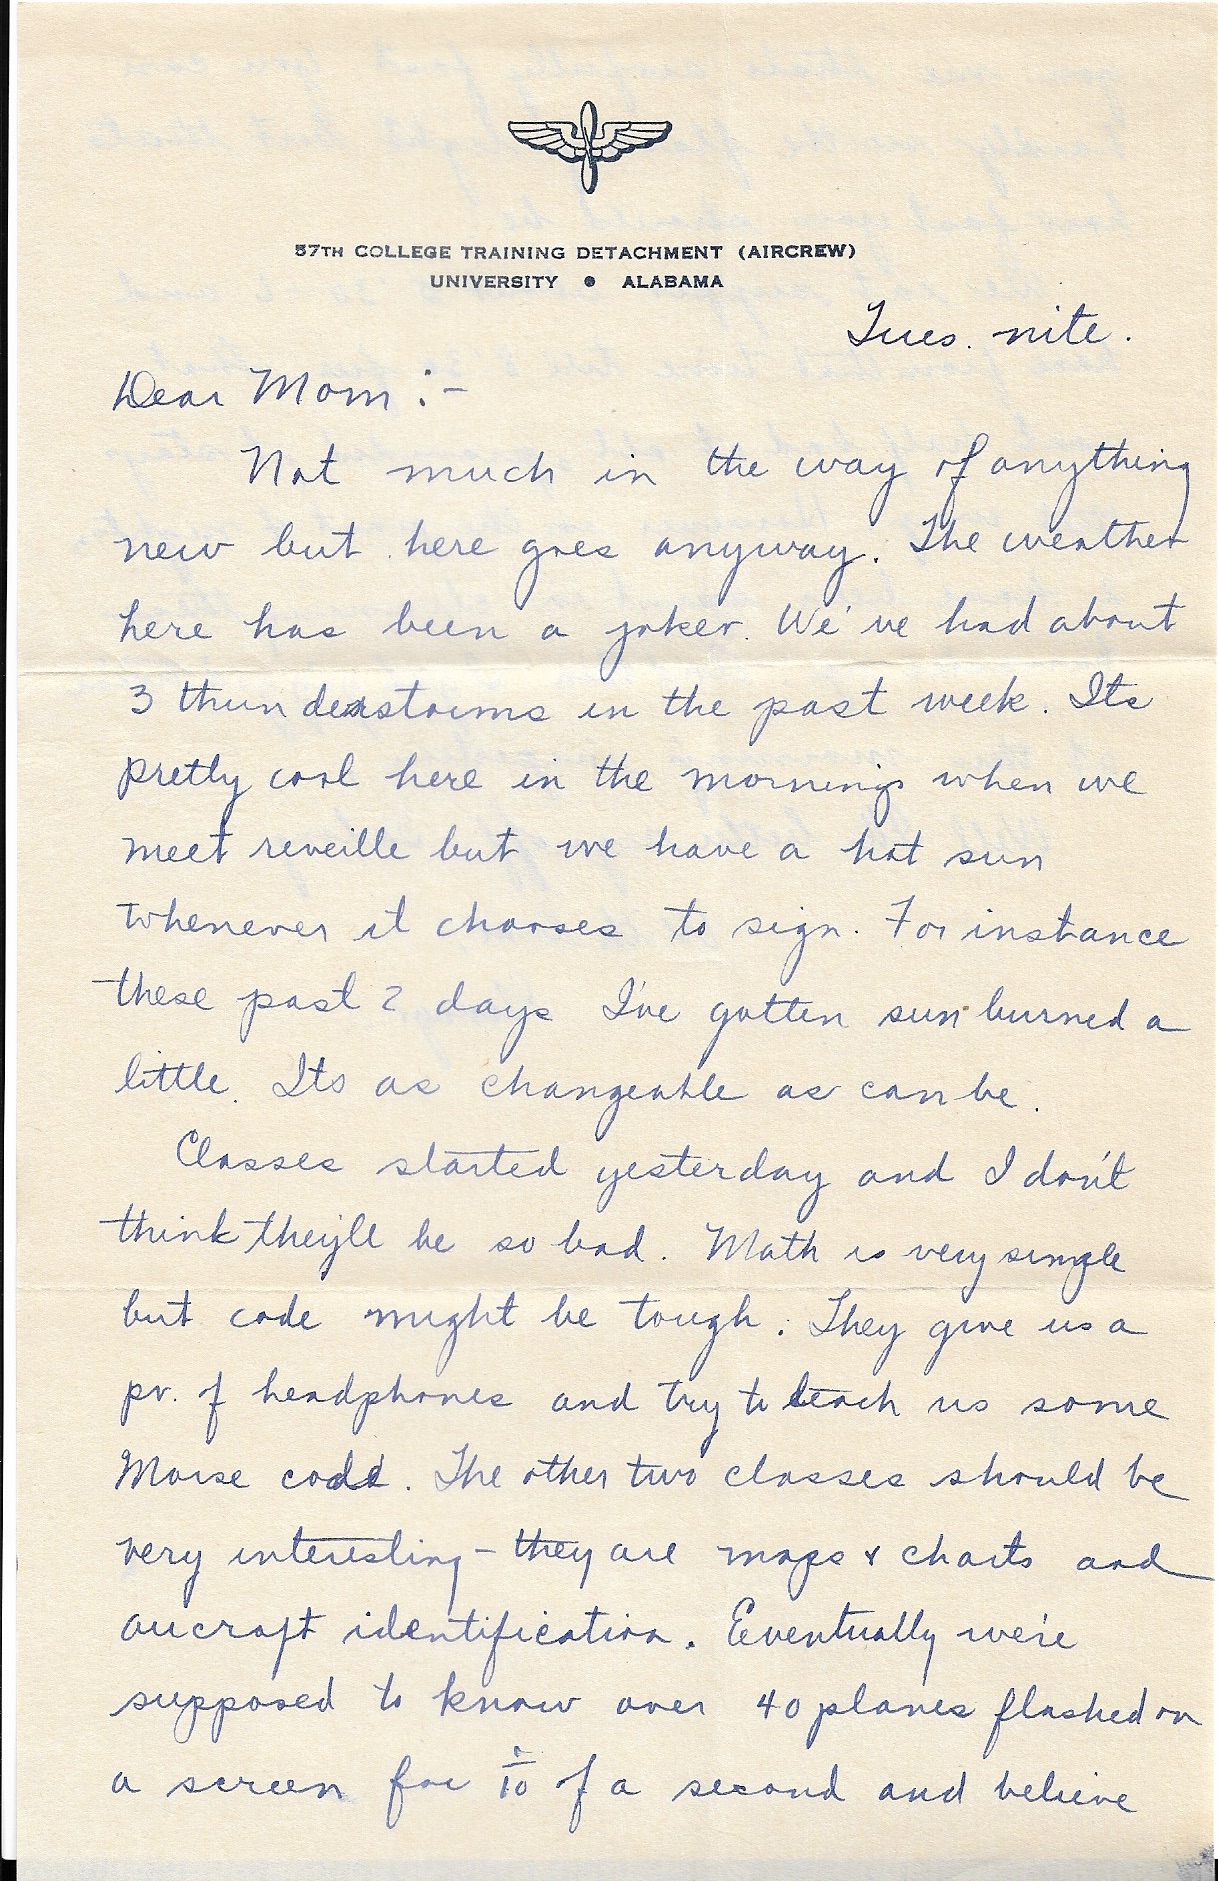 57TH COLLEGE TRAINING DETACHMENT (AIRCREW)
UNIVERSITY • ALABAMA
Tues. nite.
Dear Mom :-
Not much in the way of anything
new but here goes anyway. The weather
here has been a joker. We've had about
3 thunderstorms in the past week. Its
pretty cool here in the mornings when we
meet reveille but we have a hot sun
whenever it chooses to sign. For instance
these past 2 days I've gotten sun burned a
little. Its as changeable as can be.
Classes started yesterday and I don't
think they'll be so bad. Math is very simple
but code might be tough. They give us a
pr. of headphones and try to teach us some
Morse code. The other two classes should be
very interesting - they are maps & charts and
aircraft identification. Eventually we're
supposed to know over 40 planes flashed on
a screen for 1/10 of a second and believe